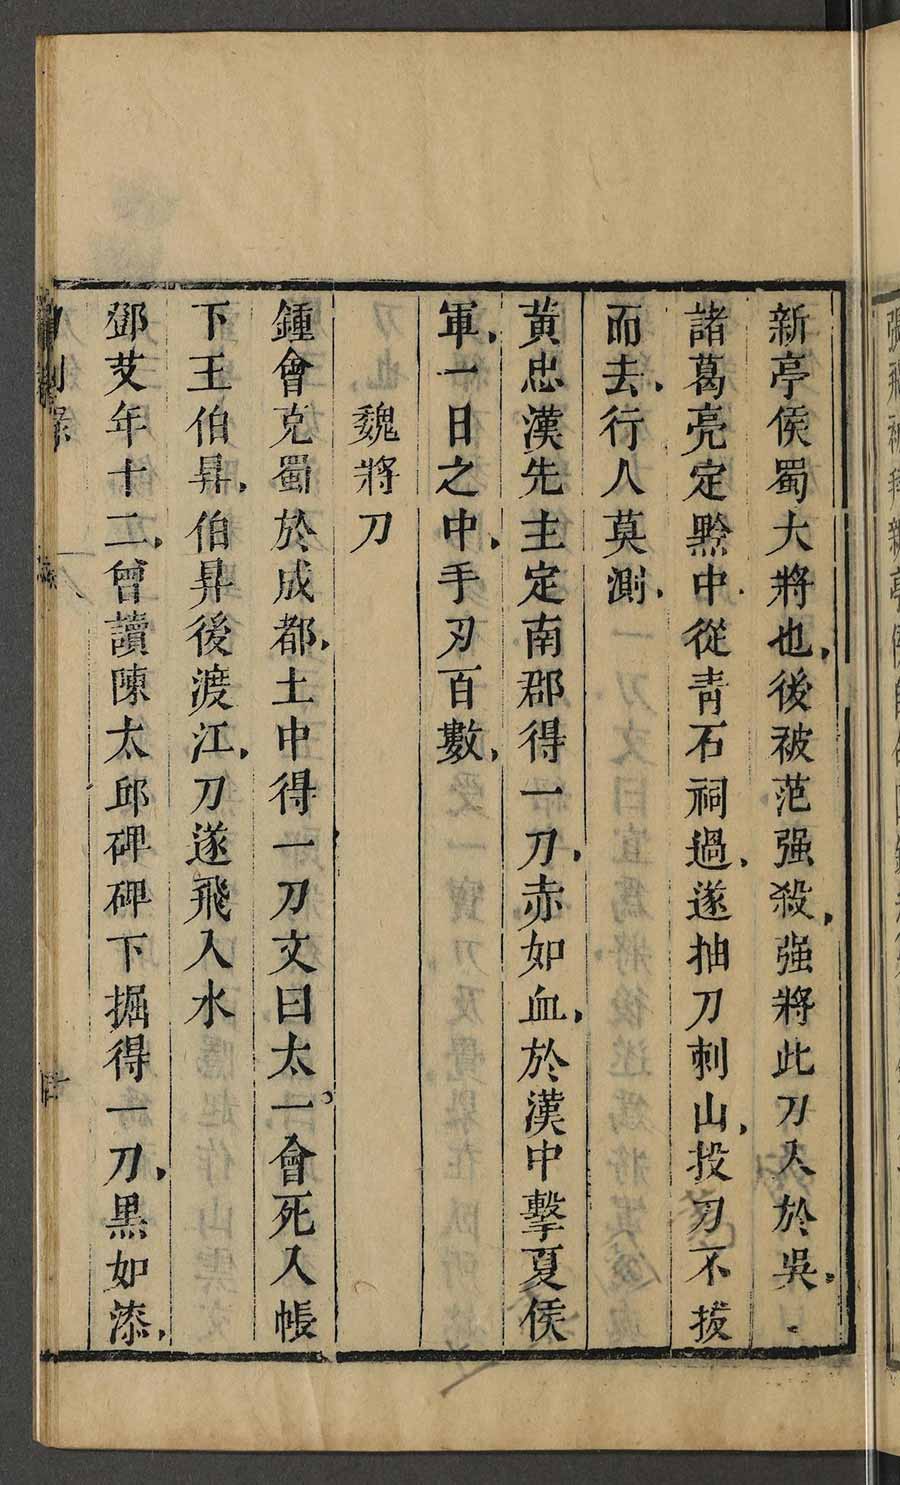 新亭侯蜀大將也，後被范强殺，强將此刀入於吳，
諸葛亮定黔中從靑石祠過，遂抽刀刺山，投刃不拔
而去，行人莫測，
黃忠漢先主定南郡得一刀，赤如血，於漢中擊夏侯
軍，一日之中，手刃百數，
魏將刀
鍾會克蜀於成都，土中得一刀文曰太一會死入帳
下王伯昇，伯昇後渡江，刀遂飛入水
鄧艾年十二，曾讀陳太邱碑碑下掘得一刀，黑如漆，